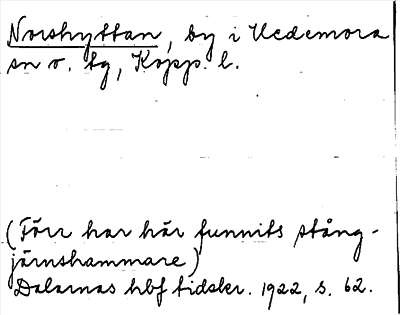 Norshyttan, by i Hedemora
sn o. tg, Kopp. l.
(Förr har här funnits stång-
järnshammare)
Dalarnas hbf tidskr. 1922, s. 62.